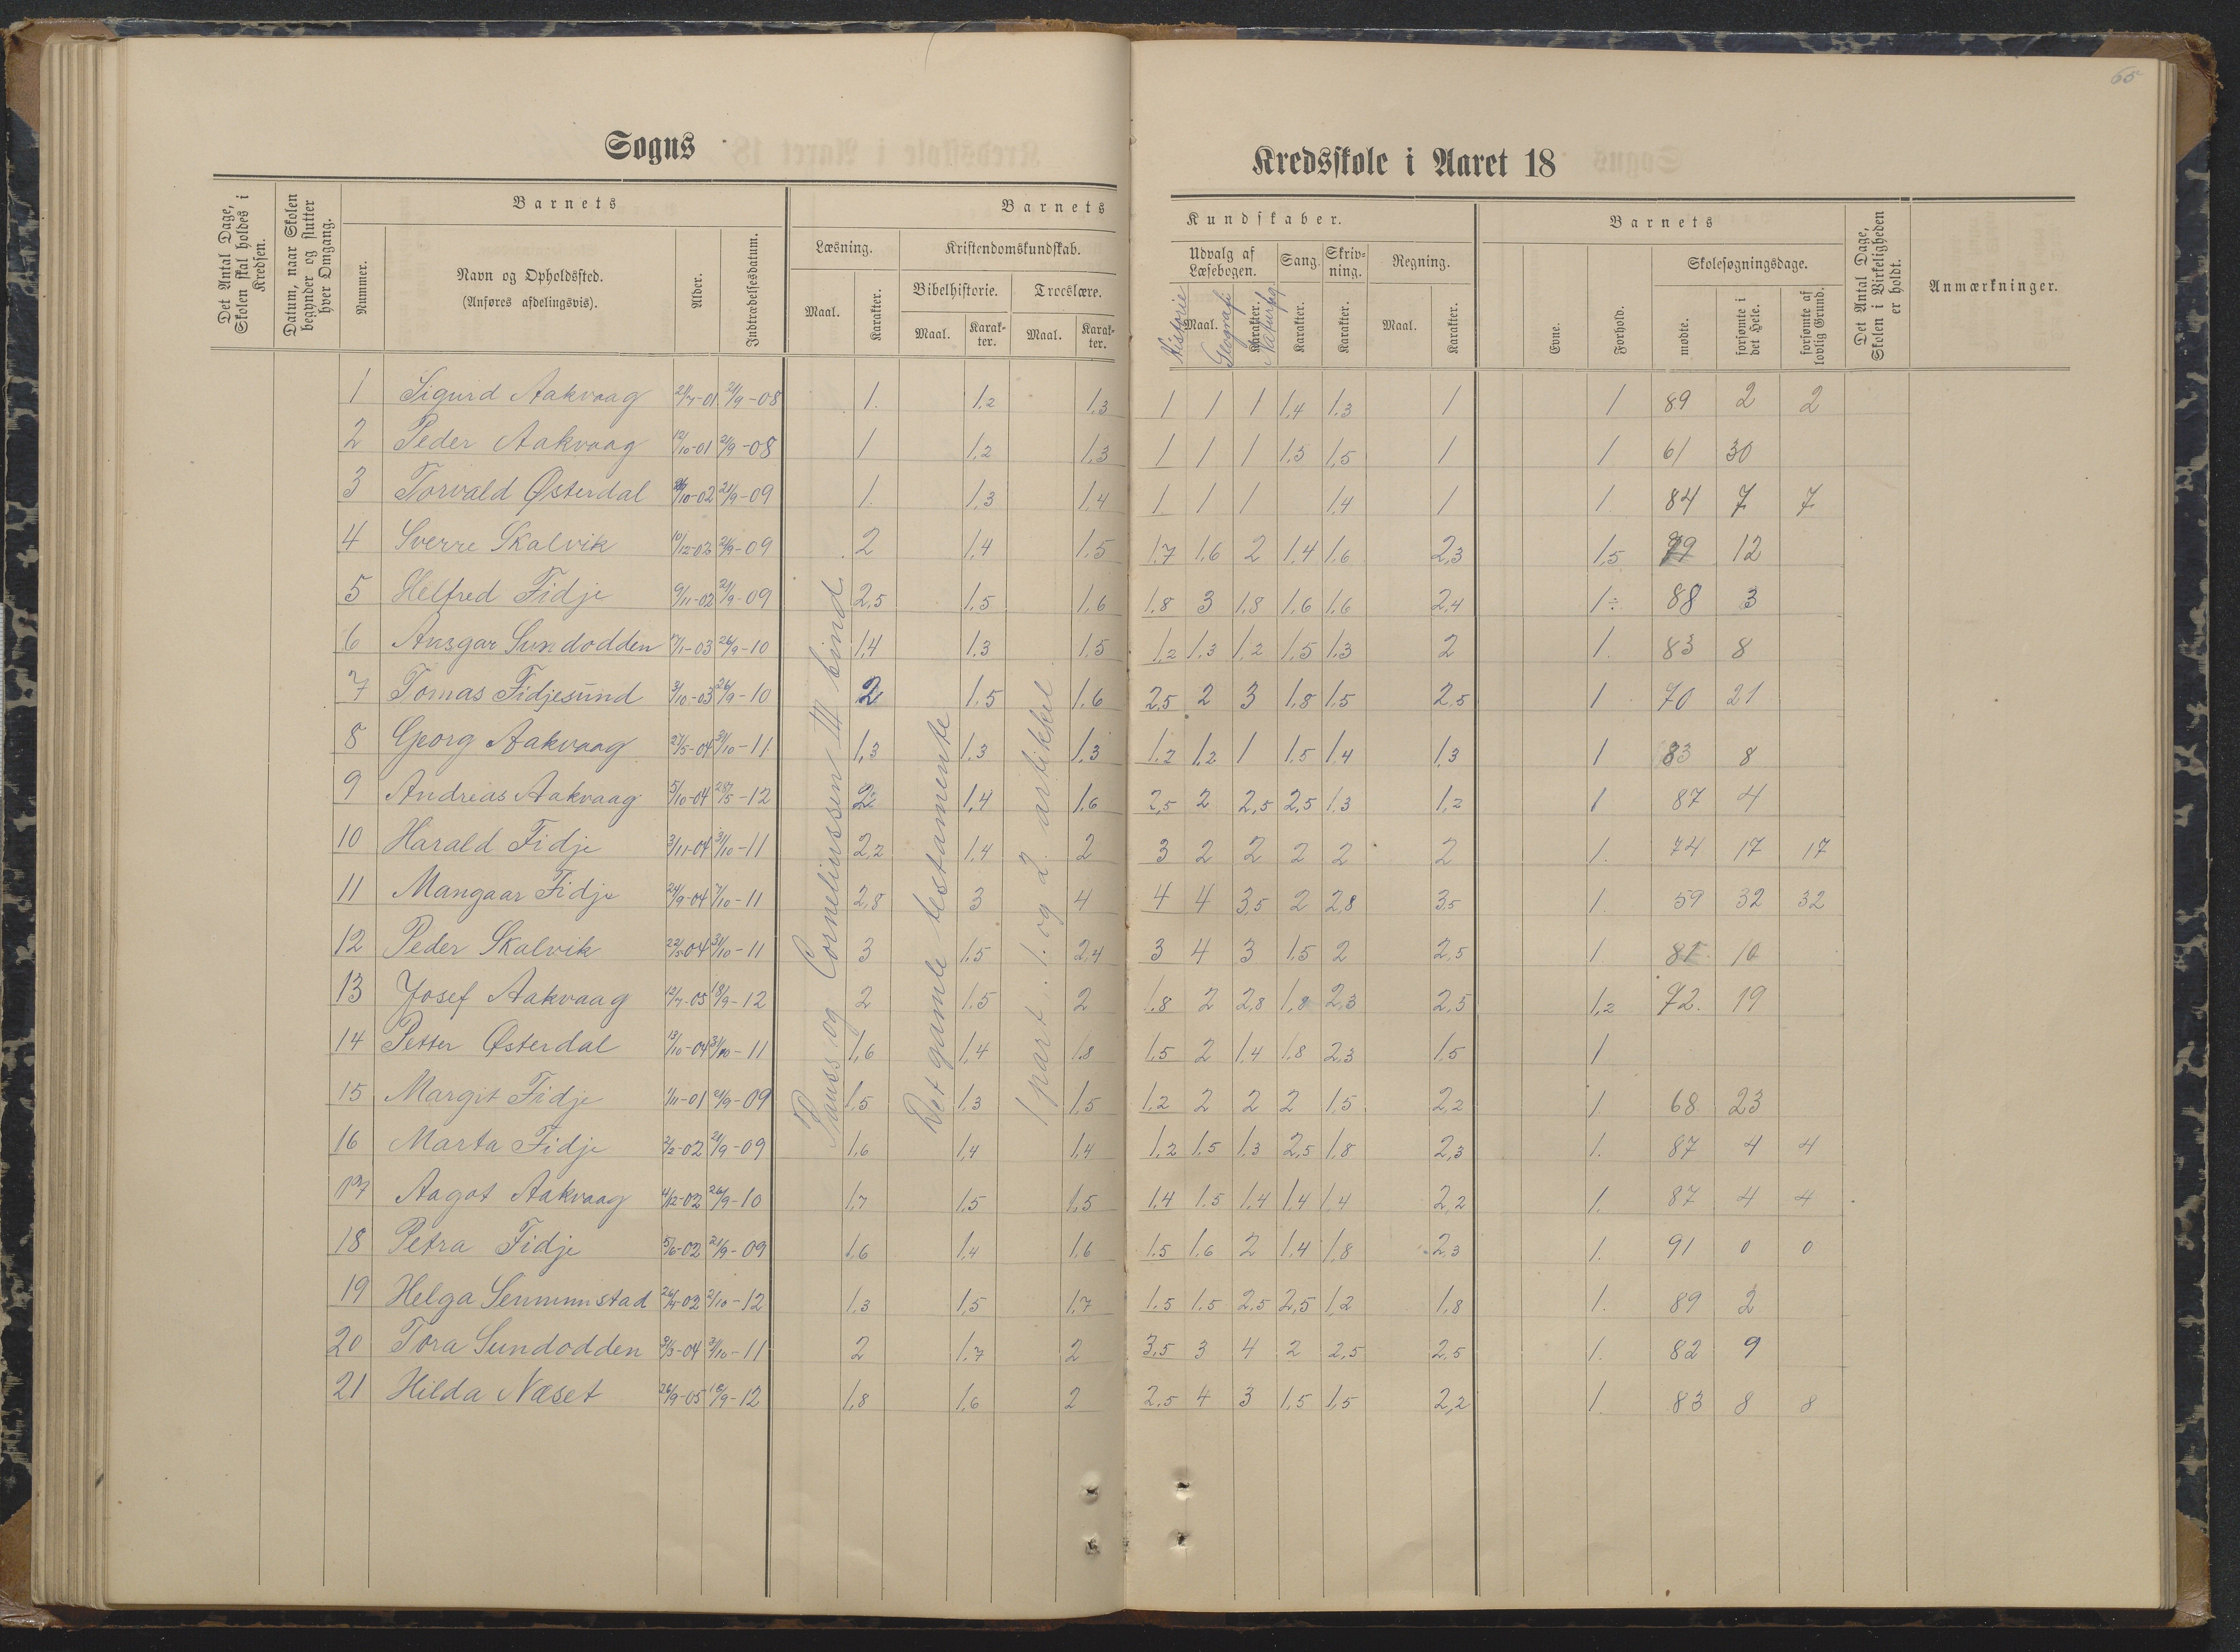 65
Sogns
Kredsskole i Aaret 18
Det Antal Dage, Skolen skal holdes i Kredsen.
Datum, naar Skolen begynder og slutter hver Omgang.
Barnets
Nummer.
Navn og Opholdssted.
(Anføres afdelingsvis).
Alder.
Indtrædelsesdatum.
Barnets
Læsning.
Kristendomskundskab.
Bibelhistorie.
Troeslære.
Maal.
Karakter.
Maal.
Karakter.
Maal.
Karakter.
Kundskaber.
Udvalg af Læsebogen.
Sang.
Skrivning.
Regning.
Historie
Maal.
Geografi
Karakter.
Naturfag
Karakter.
Karakter.
Maal.
Karakter.
Barnets
Evne.
Forhold.
Skolesøgningsdage.
mødte.
forsømte i det Hele.
forsømte af lovlig Grund.
Det Antal Dage, Skolen i Virkeligheden er holdt.
Anmærkninger.
Pauss og Corneliussen III bind
Det gamle testamente
1 part : 1. og 2. artikkel
1 Sigurd Aakvaag 21/7-01 21/9-08 1. 1,2 1,3 1 1 1 1,4 1,3 1 1 89 2 2
2 Peder Aakvaag 12/10-01 21/9-08 1 1,2 1,3 1 1 1 1,5 1,5 1 1 61 30
3 Torvald Østerdal /10-02 21/9-09 1. 1,3 1,4 1 1 1 1,4 1 1 84 7 7
4 Sverre Skalvik 10/12-02 21/9-09 2 1,4 1,5 1,7 1,6 2 1,4 1,6 2,3 1,5 79 12
5 Helfred Fidje 9/11-02 21/9-09 2,5 1,5 1,6 1,8 3 1,8 1,6 1,6 2,4 1÷ 88 3
6 Ansgar Sundodden 17/1-03 26/9-10 1,4 1,3 1,5 1,2 1,3 1,2 1,5 1,3 2 1. 83 8
7 Tomas Fidjesund 3/10-03 26/9-10 2 1,5 1,6 2,5 2 3 1,8 1,5 2,5 1 70 21
8 Georg Aakvaag 27/5-04 31/10-11 1,3 1,3 1,3 1,2 1,2 1 1,5 1,4 1,3 1 83 8
9 Andreas Aakvaag 5/10-04 28/5-12 2 1,4 1,6 2,5 2 2,5 2,5 1,3 1,2 1 87 4
10 Harald Fidje 3/11-04 31/10-11 2,2 1,4 2 3 2 2 2 2 2 1. 74 17 17
11 Mangaar Fidje 24/9-04 7/10-11 2,8 3 4 4 4 3,5 2 2,8 3,5 1. 59 32 32
12 Peder Skalvik 22/5-04 31/10-11 3 1,5 2,4 3 4 3 1,5 2 2,5 1 81 10
13 Josef Aakvaag 12/7-05 18/9-12 2 1,5 2 1,8 2 2,8 1,8 2,3 2,5 1,2 72. 19
14 Petter Østerdal 13/10-04 31/10-11 1,6 1,4 1,8 1,5 2 1,4 1,8 2,3 1,5 1
15 Margit Fidje 1/11-01 21/9-09 1,5 1,3 1,5 1,2 2 2 2 1,5 2,2 1. 68 23
16 Marta Fidje 2/2-02 21/9-09 1,6 1,4 1,4 1,2 1,5 1,3 2,5 1,8 2,3 1. 87 4 4
17 Aagot Aakvaag 4/12-02 26/9-10 1,7 1,5 1,5 1,4 1,5 1,4 1,4 1,4 2,2 1. 87 4 4
18 Petra Fidje 5/6-02 21/9-09 1,6 1,4 1,6 1,5 1,6 2 1,4 1,8 2,3 1. 91 0 0
19 Helga Semmmstad 26/4-02 2/10-12 1,3 1,5 1,7 1,5 1,5 2,5 2,5 1,2 1,8 1. 89 2
20 Tora Sundodden 9/3-04 31/10-11 2 1,7 2 3,5 3 4 2 2,5 2,5 1. 82 9
21 Hilda Næset 26/9-05 18/9-12 1,8 1,6 2 2,5 4 3 1,5 1,5 2,2 1. 83 8 8